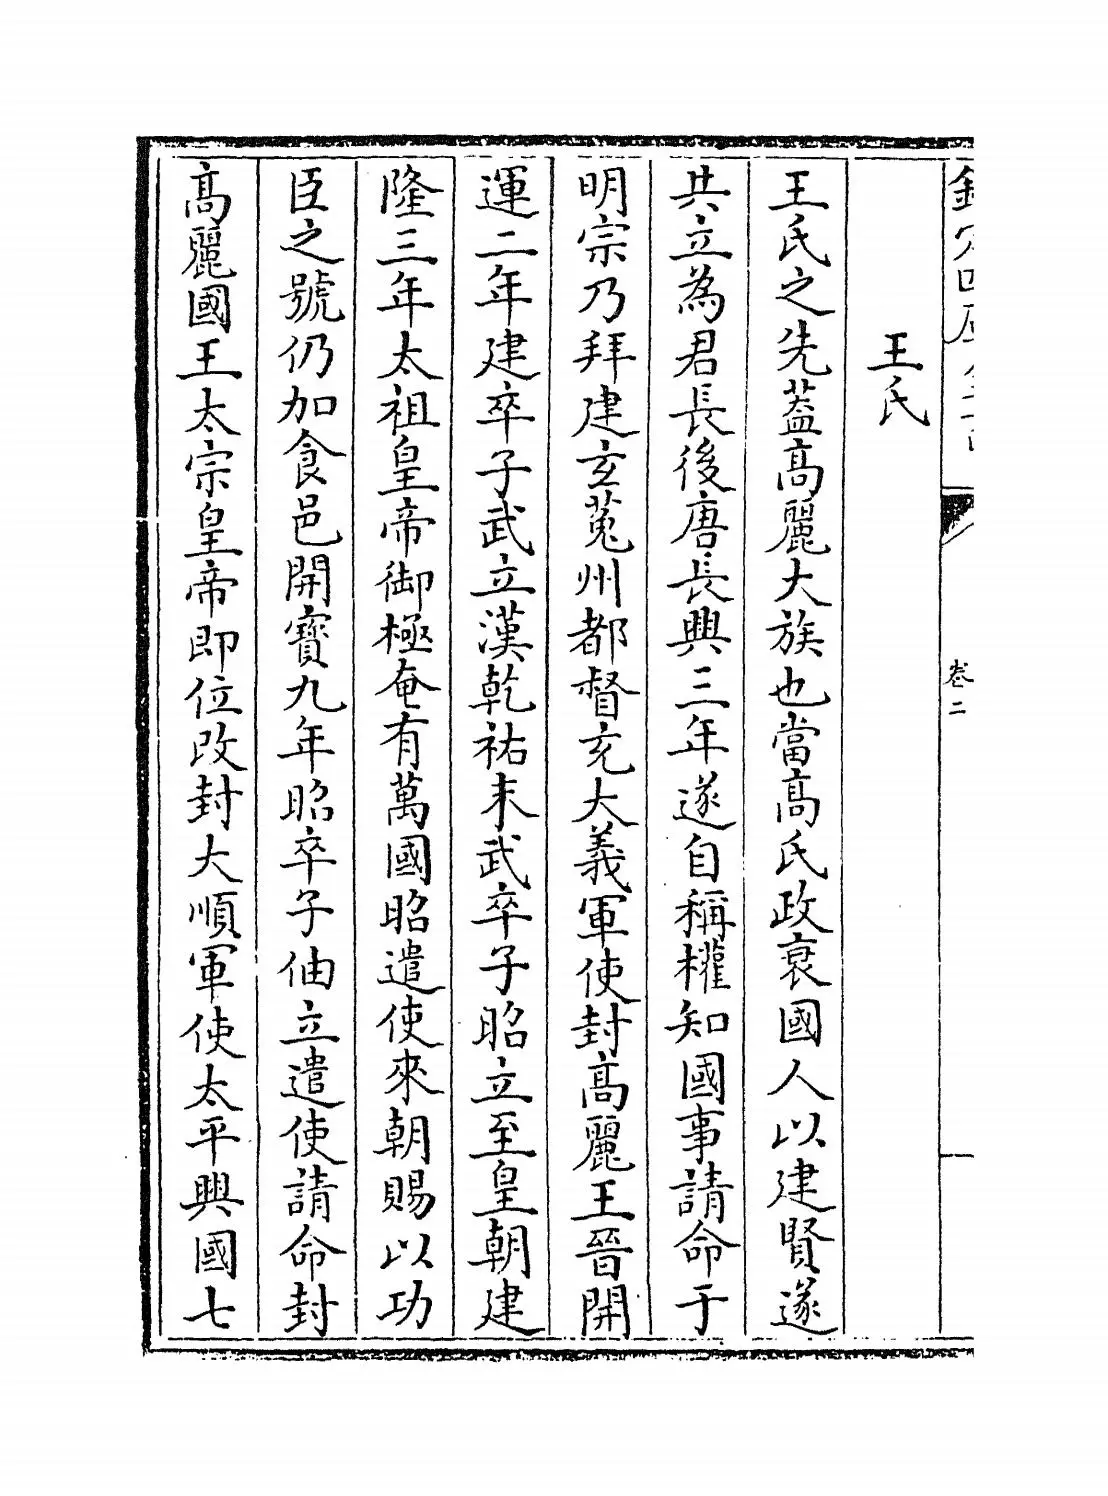 欽定四庫全書
卷二
王氏
王氏之先葢髙麗大族也當髙氏政衰國人以建賢遂
共立為君長後唐長興三年遂自稱權知國事請命于
明宗乃拜建玄菟州都督充大義軍使封髙麗王晉開
運二年建卒子武立漢乾祐末武卒子昭立至皇朝建
隆三年太祖皇帝御極奄有萬國昭遣使來朝賜以功
臣之號仍加食邑開寶九年昭卒子伷立遣使請命封
髙麗國王太宗皇帝即位改封大順軍使太平興國七